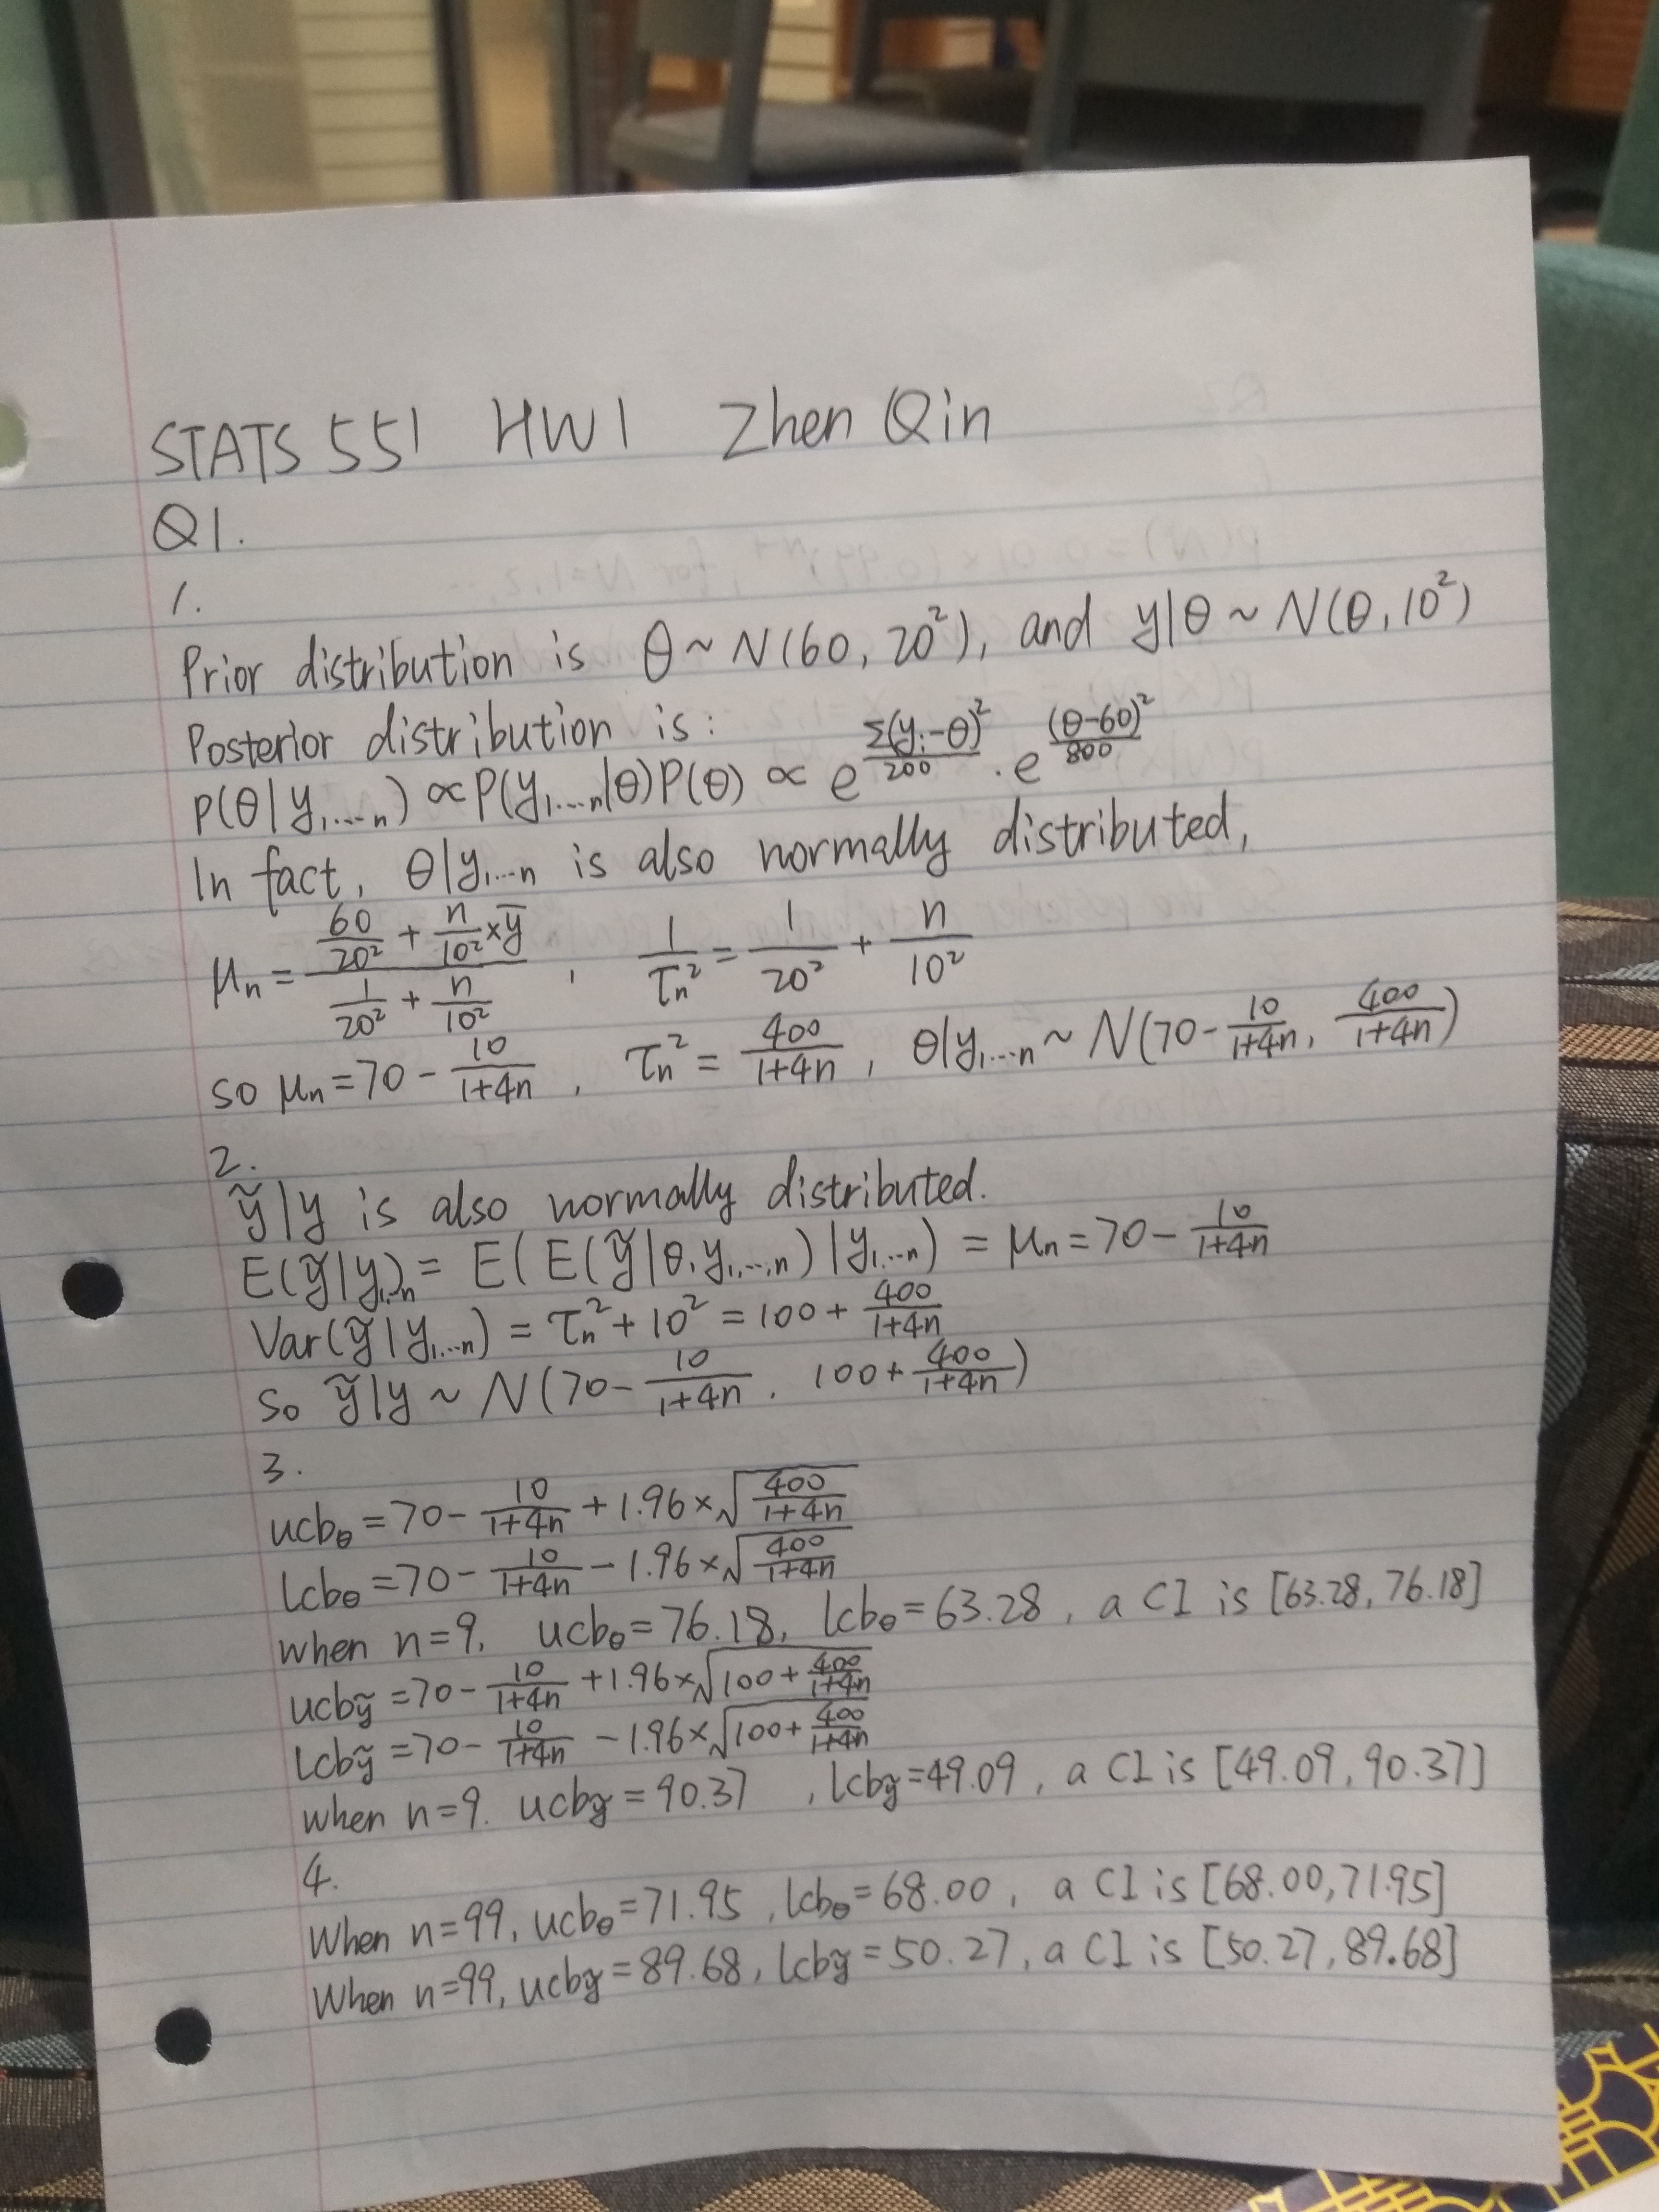 STATS 551 HW1 Zhen Qin
Q1.
1.
Prior distribution is θ ~ N(60, 20²), and y|θ ~ N(θ, 10²)
Posterior distribution is:
P(θ|y₁,...ₙ) ∝ P(y₁,...ₙ|θ)P(θ) ∝ e^(Σ(yᵢ-θ)²/200) · e^((θ-60)²/800)
In fact, θ|y₁...ₙ is also normally distributed,
μₙ = (60/20² + n/10² × ȳ)/(1/20² + n/10²), 1/τₙ² = 1/20² + n/10²
so μₙ = 70 - 10/(1+4n), τₙ² = 400/(1+4n), θ|y₁,...ₙ ~ N(70 - 10/(1+4n), 400/(1+4n))
2.
ỹ|y is also normally distributed.
E(ỹ|y₁,..ₙ) = E(E(ỹ|θ,y₁,...,ₙ)|y₁,...ₙ) = μₙ = 70 - 10/(1+4n)
Var(ỹ|y₁,...ₙ) = τₙ² + 10² = 100 + 400/(1+4n)
So ỹ|y ~ N(70 - 10/(1+4n), 100 + 400/(1+4n))
3.
ucb_θ = 70 - 10/(1+4n) + 1.96 × √(400/(1+4n))
lcb_θ = 70 - 10/(1+4n) - 1.96 × √(400/(1+4n))
when n=9, ucb_θ = 76.18, lcb_θ = 63.28, a CI is [63.28, 76.18]
ucb_ỹ = 70 - 10/(1+4n) + 1.96 × √(100 + 400/(1+4n))
lcb_ỹ = 70 - 10/(1+4n) - 1.96 × √(100 + 400/(1+4n))
when n=9. ucb_ỹ = 90.37, lcb_ỹ = 49.09, a CI is [49.09, 90.37]
4.
When n=99, ucb_θ = 71.95, lcb_θ = 68.00, a CI is [68.00, 71.95]
When n=99, ucb_ỹ = 89.68, lcb_ỹ = 50.27, a CI is [50.27, 89.68]